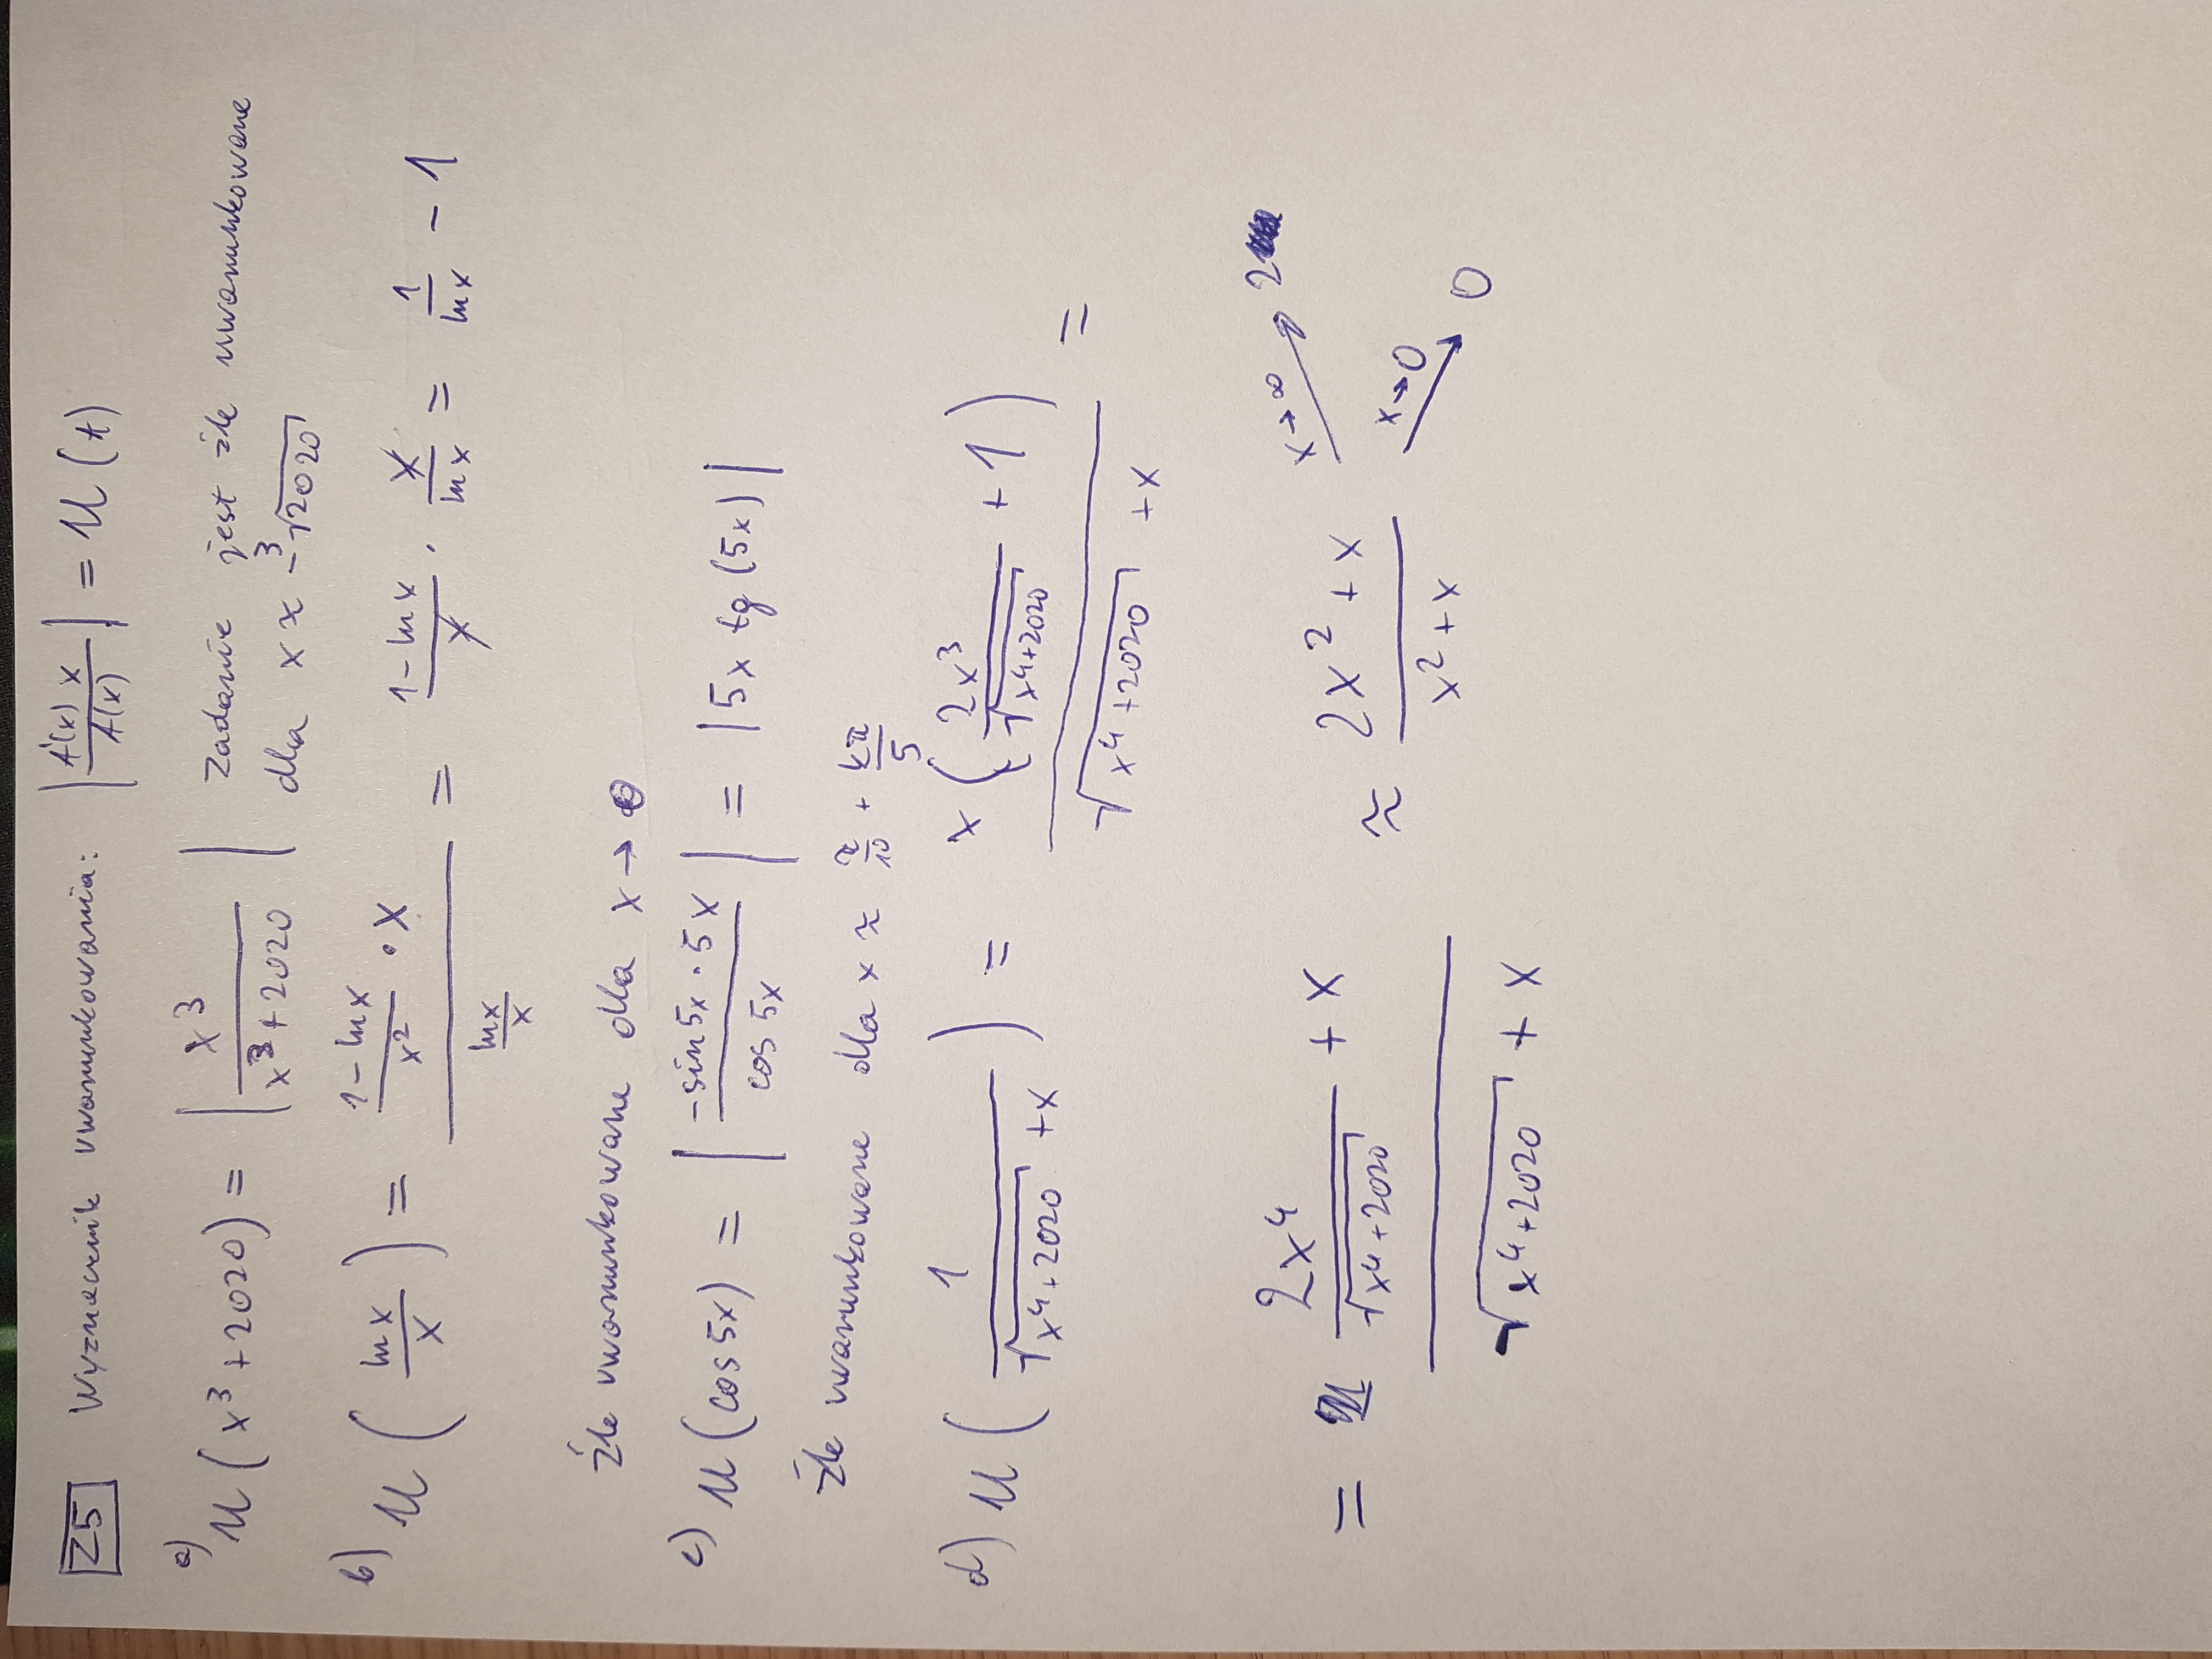 Z5 Wyznacznik uwarunkowania: |f'(x) x / f(x)| = U (f)
a) U (x³ + 2020) = |x³ / (x³ + 2020)| Zadanie jest źle uwarunkowane
dla x ≈ -³√2020
b) U (ln x / x) = ((1 - ln x)/x² · x) / (ln x / x) = (1 - ln x)/x · x/ln x = 1/ln x - 1
źle uwarunkowane dla x → 0
c) U (cos 5x) = |-sin 5x · 5x / cos 5x| = |5x tg (5x)|
źle uwarunkowane dla x ≈ π/10 + kπ/5
d) U (1 / (√(x⁴+2020) + x)) = x (2x³/√(x⁴+2020) + 1) / (√(x⁴+2020) + x) =
= (2x⁴/√(x⁴+2020) + x) / (√(x⁴+2020) + x) ≈ (2x² + x) / (x² + x) x→∞ 2
x→0 0